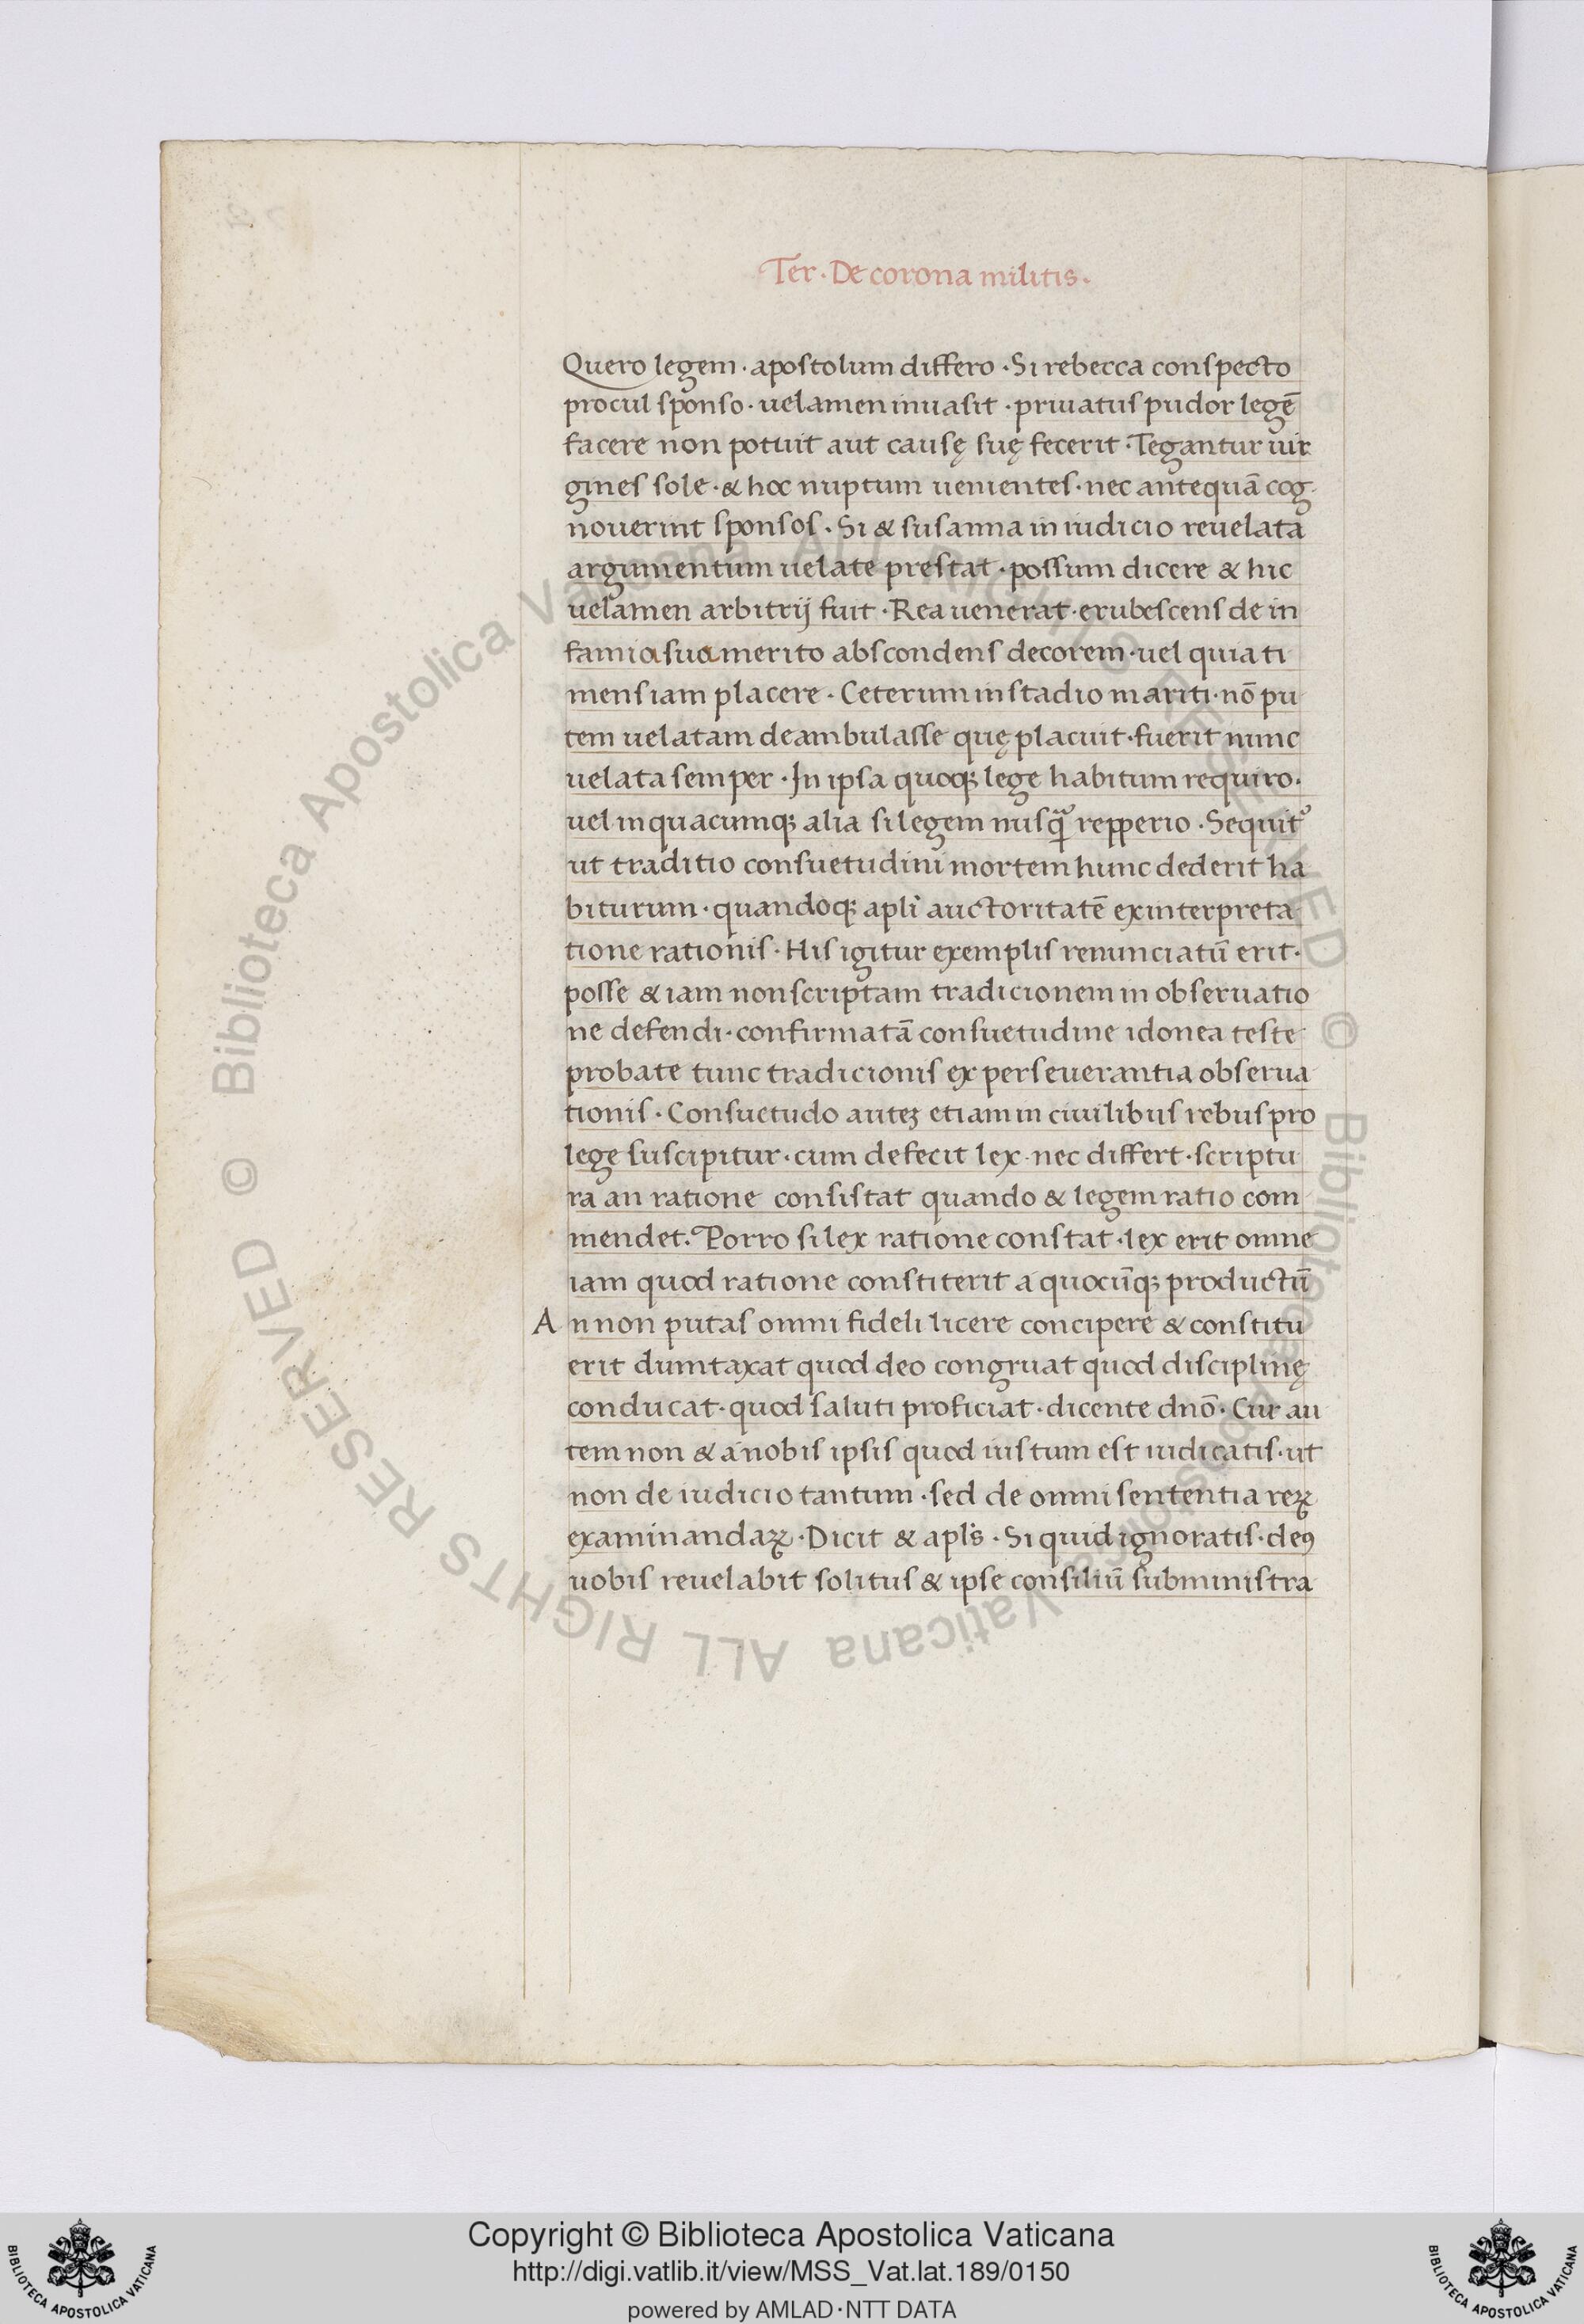 Ter · De corona militis ·
Quero legem · apostolum differo · Si rebecca conspecto
procul sponso · uelamen inuasit · priuatus pudor legē
facere non potuit aut causę suę fecerit · Tegantur uir
gines sole · & hoc nuptum uenientes · nec antequā cog
nouerint sponsos · Si & susanna in iudicio reuelata
argumentum uelate prestat · possum dicere & hic
uelamen arbitrij fuit · Rea uenerat · erubescens de in
famia sua merito abscondens decorem · uel quia ti
mens iam placere · Ceterum in stadio mariti · nō pu
tem uelatam deambulasse quę placuit · fuerit nunc
uelata semper · In ipsa quoqꝫ lege habitum requiro ·
uel in quacumqꝫ alia si legem nusq̄ᷓ repperio · Sequit᷑
ut traditio consuetudini mortem hunc dederit ha
biturum · quandoqꝫ apl̄i auctoritatē ex interpreta
tione rationis · His igitur exemplis renunciatū erit ·
posse & iam non scriptam tradicionem in obseruatio
ne defendi · confirmatā consuetudine idonea teste
probate tunc tradicionis ex perseuerantia obserua
tionis · Consuetudo auteꝫ etiam in ciuilibus rebus pro
lege suscipitur · cum defecit lex · nec differt · scriptu
ra an ratione consistat quando & legem ratio com
mendet. Porro si lex ratione constat · lex erit omne
iam quod ratione constiterit a quocūqꝫ productū
An non putas omni fideli licere concipere & constitu
erit dumtaxat quod deo congruat quod disciplinę
conducat · quod saluti proficiat · dicente dnō · Cur au
tem non & a nobis ipsis quod iustum est iudicatis · ut
non de iudicio tantum · sed de omni sententia reꝝ
examinandaꝝ · Dicit & apl̄s · Si quid ignoratis · deꝰ
uobis reuelabit solitus & ipse consiliū subministra
© Biblioteca Apostolica Vaticana ALL RIGHTS RESERVED © Biblioteca Apostolica Vaticana ALL RIGHTS RESERVED
Copyright © Biblioteca Apostolica Vaticana
http://digi.vatlib.it/view/MSS_Vat.lat.189/0150
powered by AMLAD·NTT DATA
BIBLIOTECA APOSTOLICA VATICANA
BIBLIOTECA APOSTOLICA VATICANA